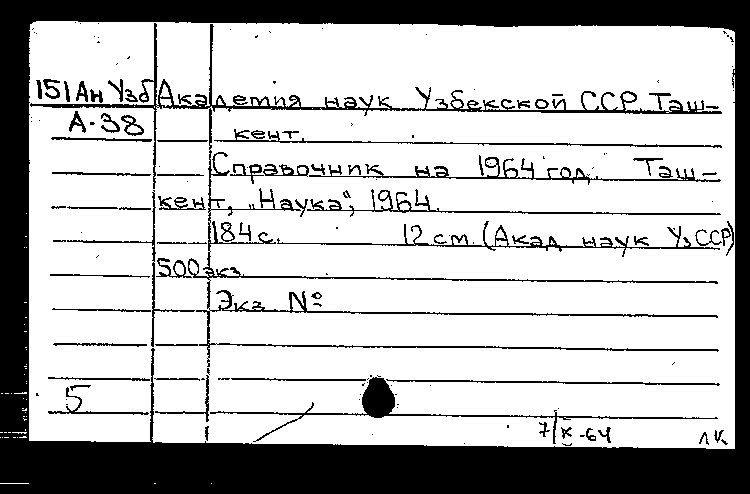 151 Ан Узб Академия наук Узбекской ССР. Таш-
А-38 кент.
Справочник на 1964 год. Таш-
кент, „Наука", 1964.
184 с. 12 см. (Акад. наук УзССР)
500 экз.
Экз. №
5
7/X-64 ЛК